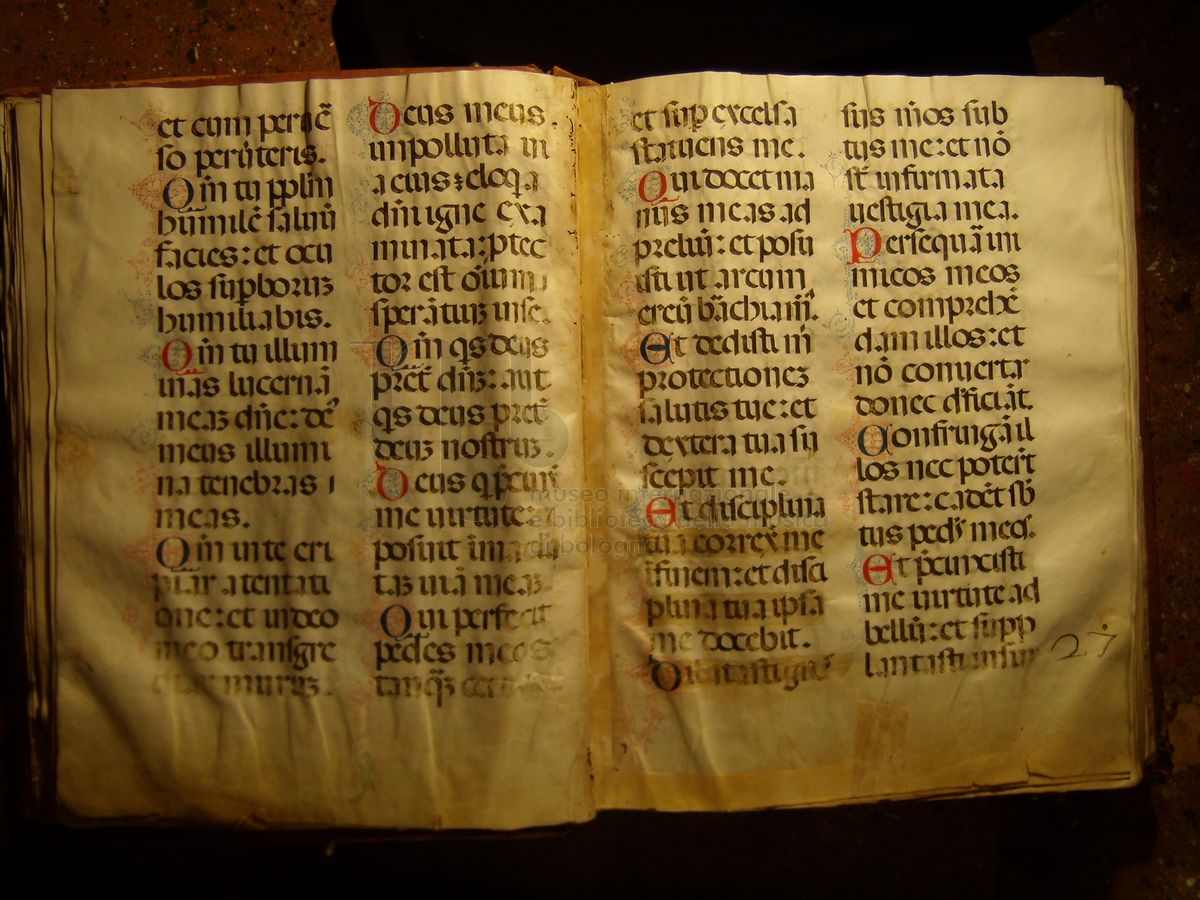 et cum peruẽ
so peruteris.
Qm̃ tu pplm̃
humilẽ saluũ
facies: et ocu
los supboruꝫ
humiliabis.
Qm̃ tu illumi
nas lucernã
meaꝫ dñe: de᷒
meus illumi
na tenebras
meas.
Qm̃ in te eri
piar a tentati
one: et in deo
meo transgre
diar muruꝫ.
Deus meus
impolluta ui
a eius: eloq̃a
dñi igne exa
minata: ptec
tor est oĩum
speratiuꝫ in se.
Qm̃ qs deus
pret᷒ dñꝫ: aut
qs deus pret᷒
deuꝫ nostruꝫ.
Deus q̃ pcinx̃
me uirtute:
posuit ĩmacula
taꝫ uiã meaꝫ.
Qui perfecit
pedes meos
tanqꝫ ceruoꝝ
et sup excelsa
statuens me.
Qui docet ma
nus meas ad
preliũ: et posu
isti ut arcum
ereũ bãchia m̃.
Et dedisti m̃
protectioneꝫ
salutis tue: et
dextera tua su
scepit me.
Et disciplina
tua correx̃ me
ĩ finem: et disci
plina tua ipsa
me docebit.
Dilatasti g̃ss᷒
sus m̃os sub
tus me: et nõ
st̃ infirmata
uestigia mea.
Persequã ini
micos meos
et comprehẽ
dam illos: et
nõ conuertar
donec dficiãt.
Confringã il
los nec poter̃t
stare: cadẽt sb̃
tus ped᷒ meos.
Et p̃cinxisti
me uirtute ad
bellũ: et supp
lantasti insur
27
museo internazionale
e biblioteca della musica
di bologna